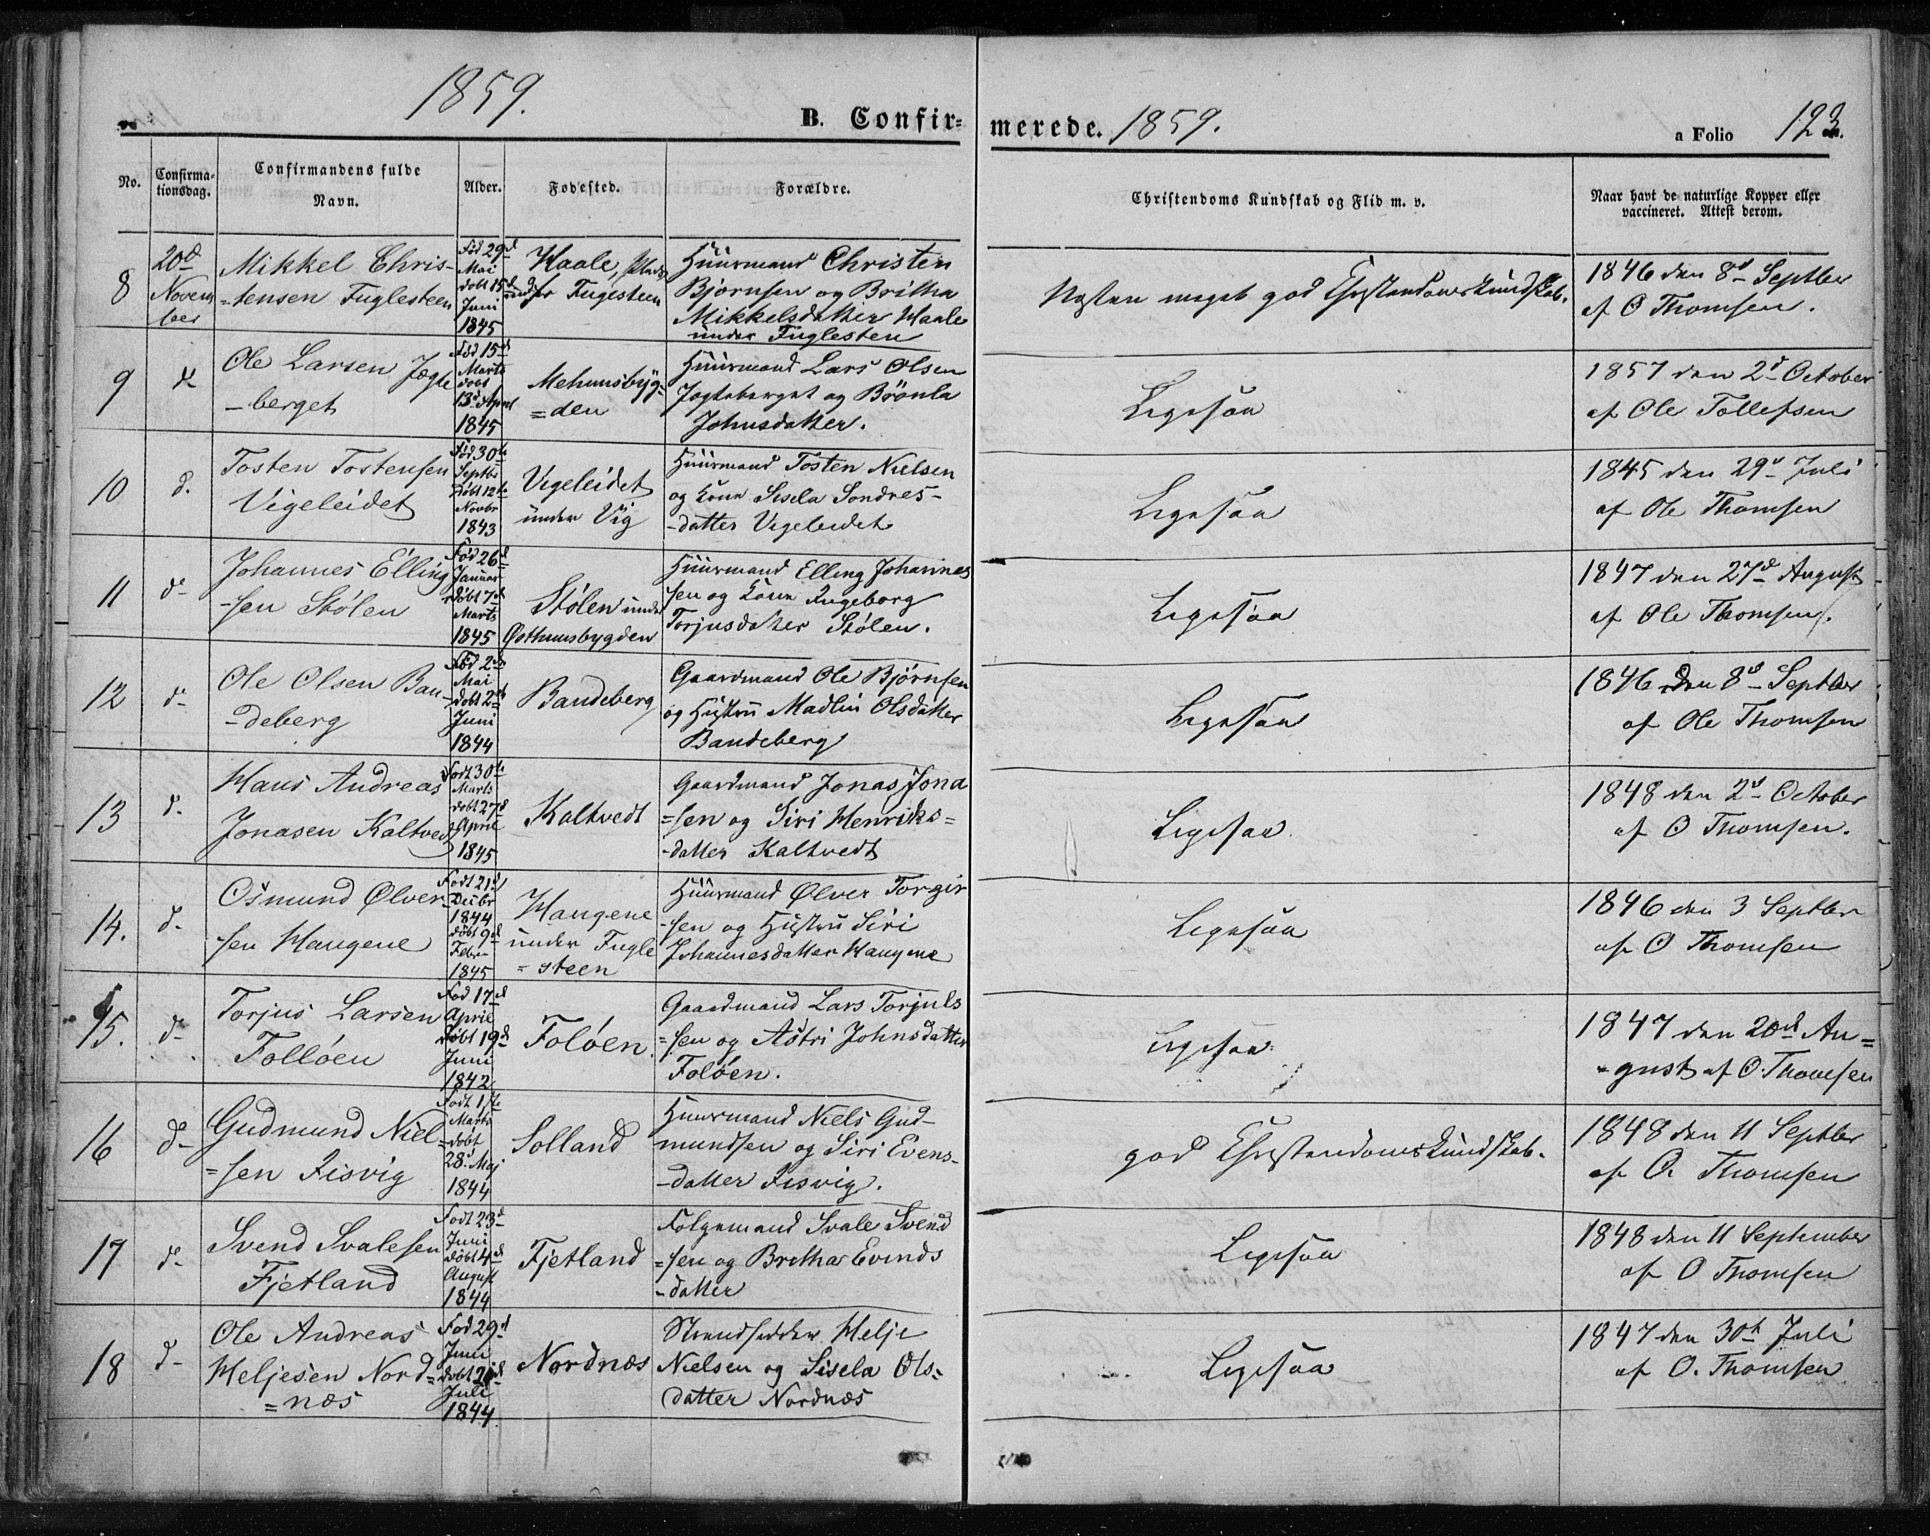 1859.
B. Confir-
merede. 1859.
a Folio 123.
No.
Confirma-
tionsdag.
Confirmandens fulde
Navn.
Alder.
Fødested.
Forældre.
Christendoms Kundskab og Flid m. v.
Naar havt de naturlige Kopper eller
vaccineret. Attest derom.
8
20d
Novem
ber
Mikkel Chris-
-tensen Fuglesteen
Fød 29d
Mai
døbt 15d
Juni
1845
Haale, Plads
under Fuglesteen
Huusmand Christen
Bjørnsen og Britha
Mikkelsdatter Haale
under Fuglesten
Næsten meget god Christendomskundskab.
1846 den 8d Septber
af O Thomsen.
9
d
Ole Larsen Jægte
-berget
Fød 15d
Marts
døbt
13d April
1845
Mehuusbyg-
=den
Huusmand Lars Olsen
Jægteberget og Børıla
Johnsdatter.
Ligesaa
1857 den 2d October
af Ole Tollefsen
10
d.
Tosten Tostensen
Vigeleidet
Fød 30te
Septbr
Døbt 12te
Novbr
1843
Vigeleidet
under Vig
Huusmand Tosten Nielsen
og Kone Sisela Sondres-
-datter Vigeleidet
Ligesaa
1845 den 29d Juli
af Ole Thomsen
11
d-
Johannes Elling
-sen Stølen
Fød 26d
Januar
døbt 7d
Marts
1845
Stølen under
Østhuusbygden
Huusmand Elling Johannes
sen og Kone Ingeborg
Torjusdatter Stølen.
Ligesaa
1847 den 27d August
af Ole Thomsen.
12
d-
Ole Olsen Ban
-deberg
Fød 2d
Mai
døbt 2d
Juni
1844
Bandeberg
Gaardmand Ole Bjørnsen
og Hustru Madlin Olsdatter
Bandeberg
Ligesaa
1846 den 8d Septber
af Ole Thomsen
13
d.
Hans Andreas
Jonasen Kaltvedt
Født 30te
Marts
døbt 27d
April
1845
Kaltvedt
Gaardmand Jonas Jona
=sen og Siri Henriks=
-datter Kaltvedt
Ligesaa
1848 den 2d October
af O Thomsen.
14.
d.
Osmund Ølver-
sen Haugene
Født 21d
Decbr
1844
døbt 9d
Febr
1845
Haugene
under Fugle
=steen
Huusmand Ølver Torgir
-sen og Hustru Siri
Johannesdatter Haugene
Ligesaa
1846 den 3 Septber
af O Thomsen
15.
d-
Torjus Larsen
Folløen
Fød 17d
April
døbt 19d
Juni
1842
Foløen.
Gaardmand Lars Torjuls
=sen og Astri Johnsdatter
Foløen.
Ligesaa
1847 den 20d Au=
-gust af O. Thomsen
16
d-
Gudmund Niel=
=sen Fisvig
Født 17de
Marts
døbt
28d Maj
1844
Solland
Huusmand Niels Gud-
mundsen og Siri Evens-
-datter Fisvig.
god Christendomskundskab.
1848 den 11 Septber
af O. Thomsen
17
d.
Svend Svalesen
Fjetland
Født 23d
Juni
døbt 4d
August
1844
Fjetland
Folgemand Svale Svend
=sen og Britha Evinds
-datter
Ligesaa
1848 den 11 September
af O Thomsen
18
d-
Ole Andreas
Heljesen Nord=
=næs
Fød 29d
Juni
døbt 21d
Juli
1844
Nordnæs
Strandsidder Helje
Nielsen og Sisela Ols-
datter Nordnæs
Ligesaa
1847 den 30te Juli
af O. Thomsen